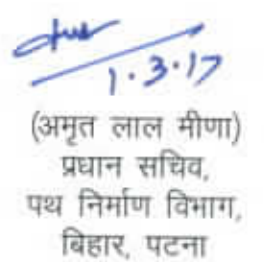 1.3.17
(अमृत लाल मीणा)
प्रधान सचिव,
पथ निर्माण विभाग,
बिहार, पटना